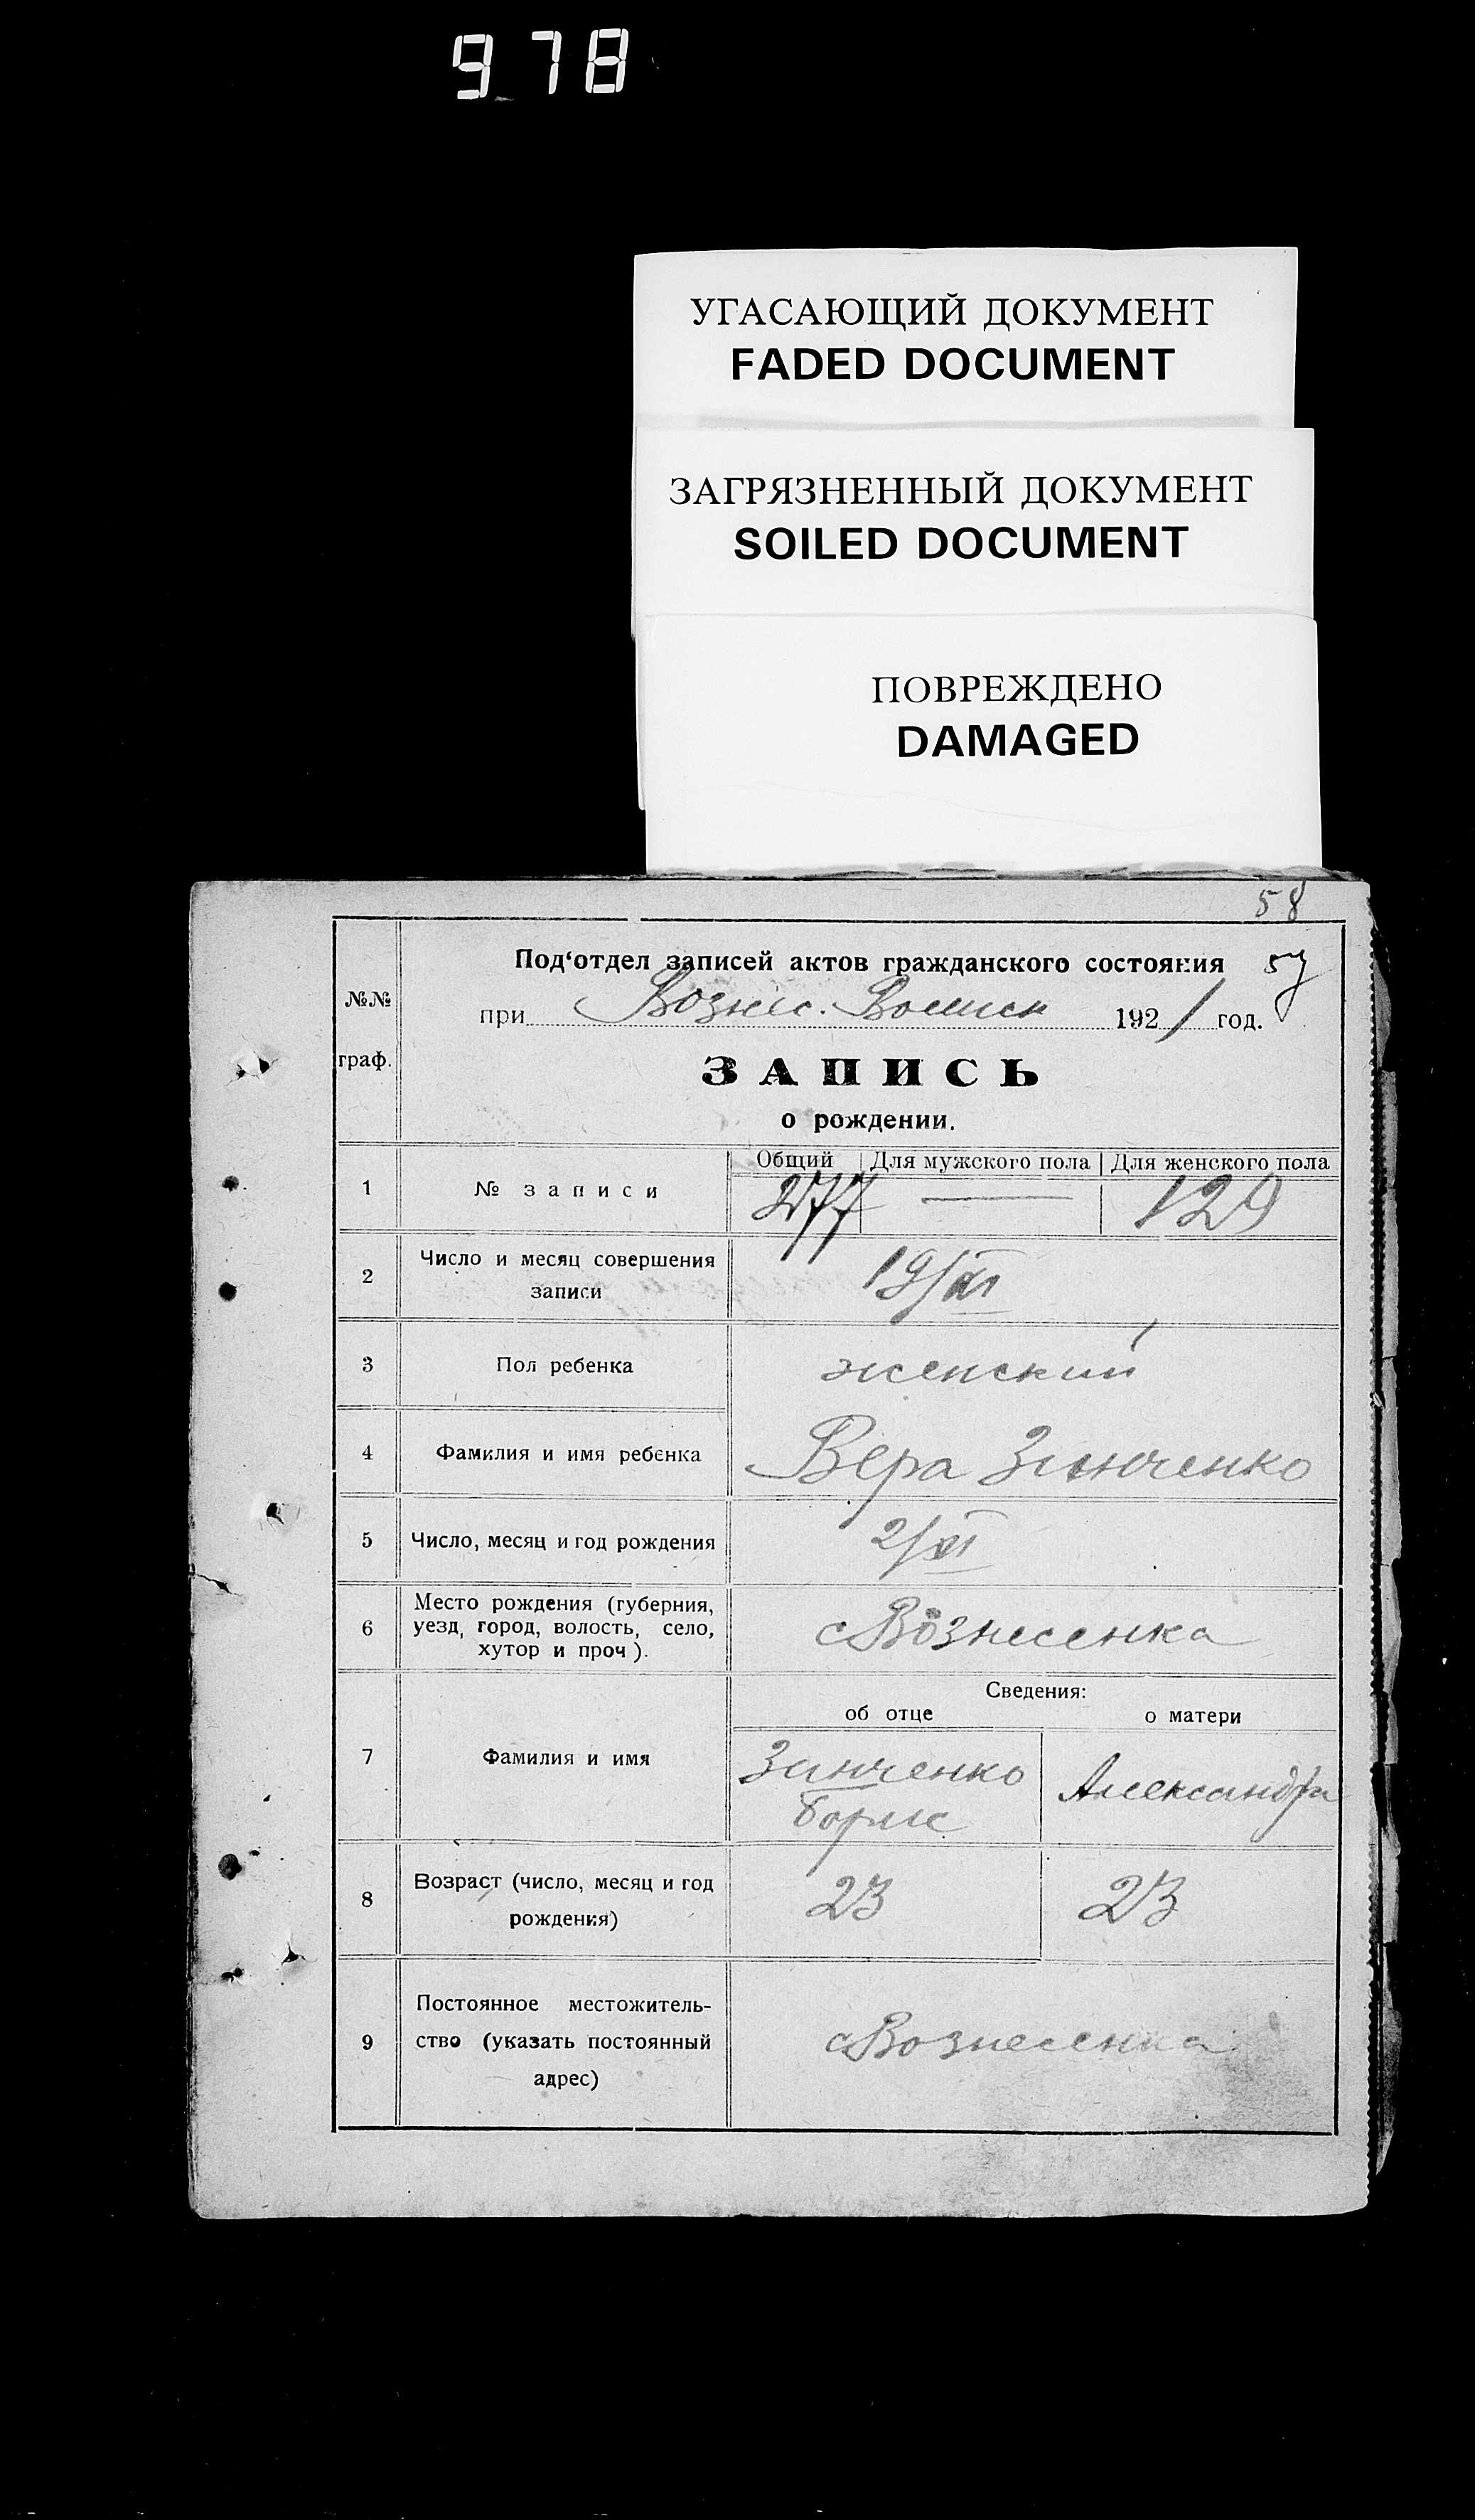 978
УГАСАЮЩИЙ ДОКУМЕНТ
FADED DOCUMENT
ЗАГРЯЗНЕННЫЙ ДОКУМЕНТ
SOILED DOCUMENT
ПОВРЕЖДЕНО
DAMAGED
58
57
№№ граф.
Под‘отдел записей актов гражданского состояния
при Вознес. 1921 год.
ЗАПИСЬ
о рождении.
Общий Для мужского пола Для женского пола
1 № записи 277 — 129
2 Число и месяц совершения
записи 19/XI
3 Пол ребенка женский
4 Фамилия и имя ребенка Вера Зинченко
5 Число, месяц и год рождения 2/XI
6 Место рождения (губерния,
уезд, город, волость, село,
хутор и проч). с Вознесенка
Сведения:
об отце о матери
7 Фамилия и имя Зинченко Александра
Борис
8 Возраст (число, месяц и год
рождения) 23 23
9 Постоянное местожитель-
ство (указать постоянный
адрес) с Вознесенка